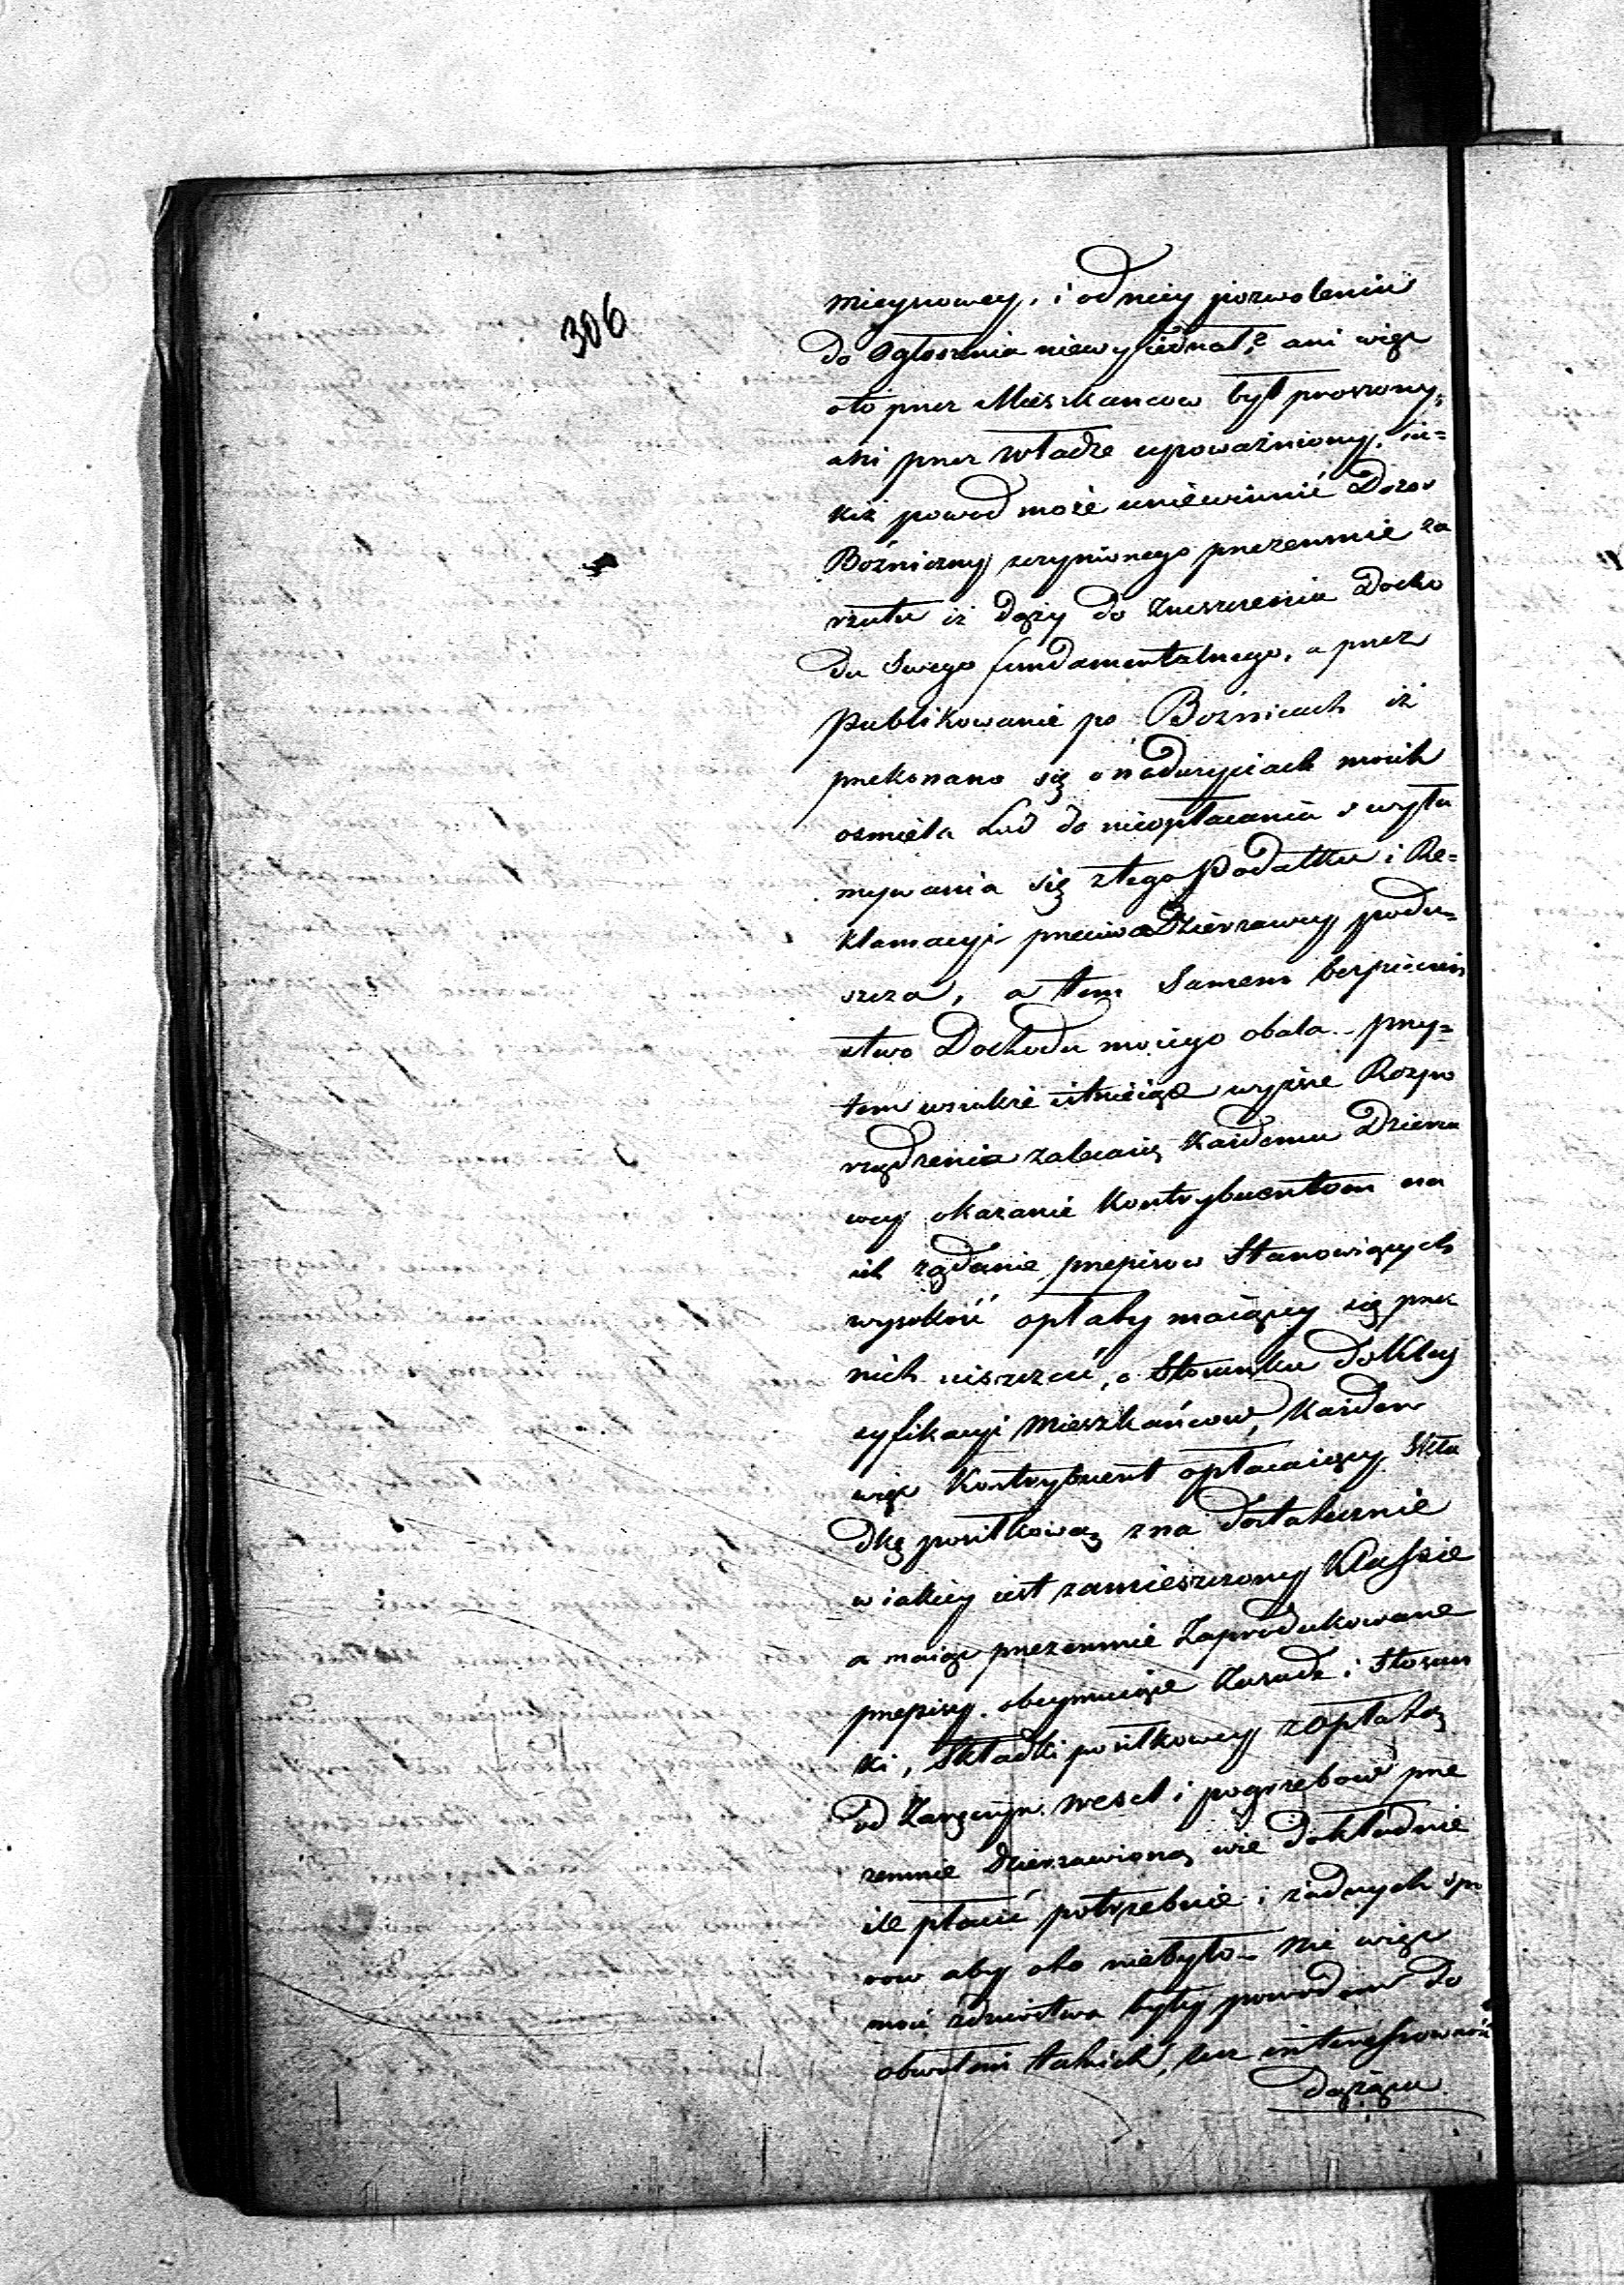 306
mieysowey, i od niey pozwolenia
do Ogłoszenia niewyiednał, ani więc
oto przez Mieszkancow był proszony,
ani przez władze upoważniony. Ia=
kiż powod może uniewinnić Dozor
Bóżniczny uczynionego przezemnie za
rzutu iż dąży do Zniszczenia Docho
du Swego fundamentalnego, a przez
Publikowanie po Bożnicach iż
przekonano się o nadużyciach moich
osmiela Lud do nieopłacania i wyła
mywania się z tego Podatku i Re=
klamacyi przeciwo Dzierzawcy podu=
szcza, a tem Samem bezpieczeń
stwo Dochodu moiego obala. przy=
tem wszakże istnieiące wyższe Rozpo
rządzenia zalecaią Każdemu Dzierza
wcy okazanie Kontrybuentom na
ich żądanie przepisow Stanowiących
wysokość opłaty maiącey się przez
nich uiszczać, o Stosunku do Klas
syfikacyi Mieszkańcow, Każden
więc Kontrybuent opłacaiący Skła
dkę posiłkową zna dostatecznie
w iakiey iest zamieszczony Klassie
a maiąc przezemnie Zaprodukowane
przepisy obeymuiące Zasade i Stosun
ki, Składki posiłkowey z opłatą
od Zaręczyn Wesel i pogrzebow prze
zemnie Dzierzawioną wie dokładnie
ile płacić potrzebuie i żadnych spo
row aby oto niebyło. Nie więc
moie zdzierstwa były powodem do
obwołań takich, lecz interessowność
dążąca